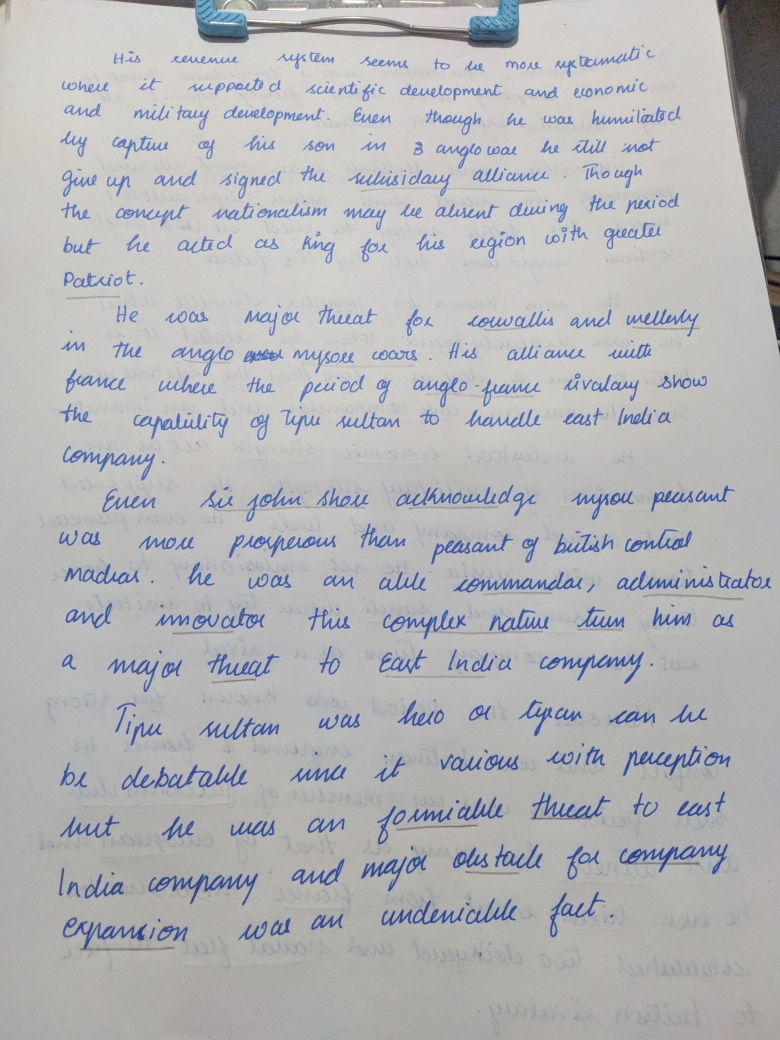 His revenue system seems to be more systematic
where it supported scientific development and economic
and military development. Even though he was humiliated
by capture of his son in 3 anglo war he still not
give up and signed the subsidary alliance. Though
the concept nationalism may be absent during the period
but he acted as king for his region with greater
Patriot.
He was major threat for cowallis and wellerly
in the anglo mysore wars. His alliance with
france where the period of anglo-france rivalary show
the capability of Tipu sultan to handle east India
company.
Even sir john shore acknowledge mysore peasant
was more prosperous than peasant of british control
madras. he was an able commandar, administrator
and innovator this complex nature turn him as
a major threat to East India company.
Tipu sultan was hero or tyran can be
be debatable since it various with perception
but he was an formiable threat to east
India company and major obstacle for company
expansion was an undeniable fact.